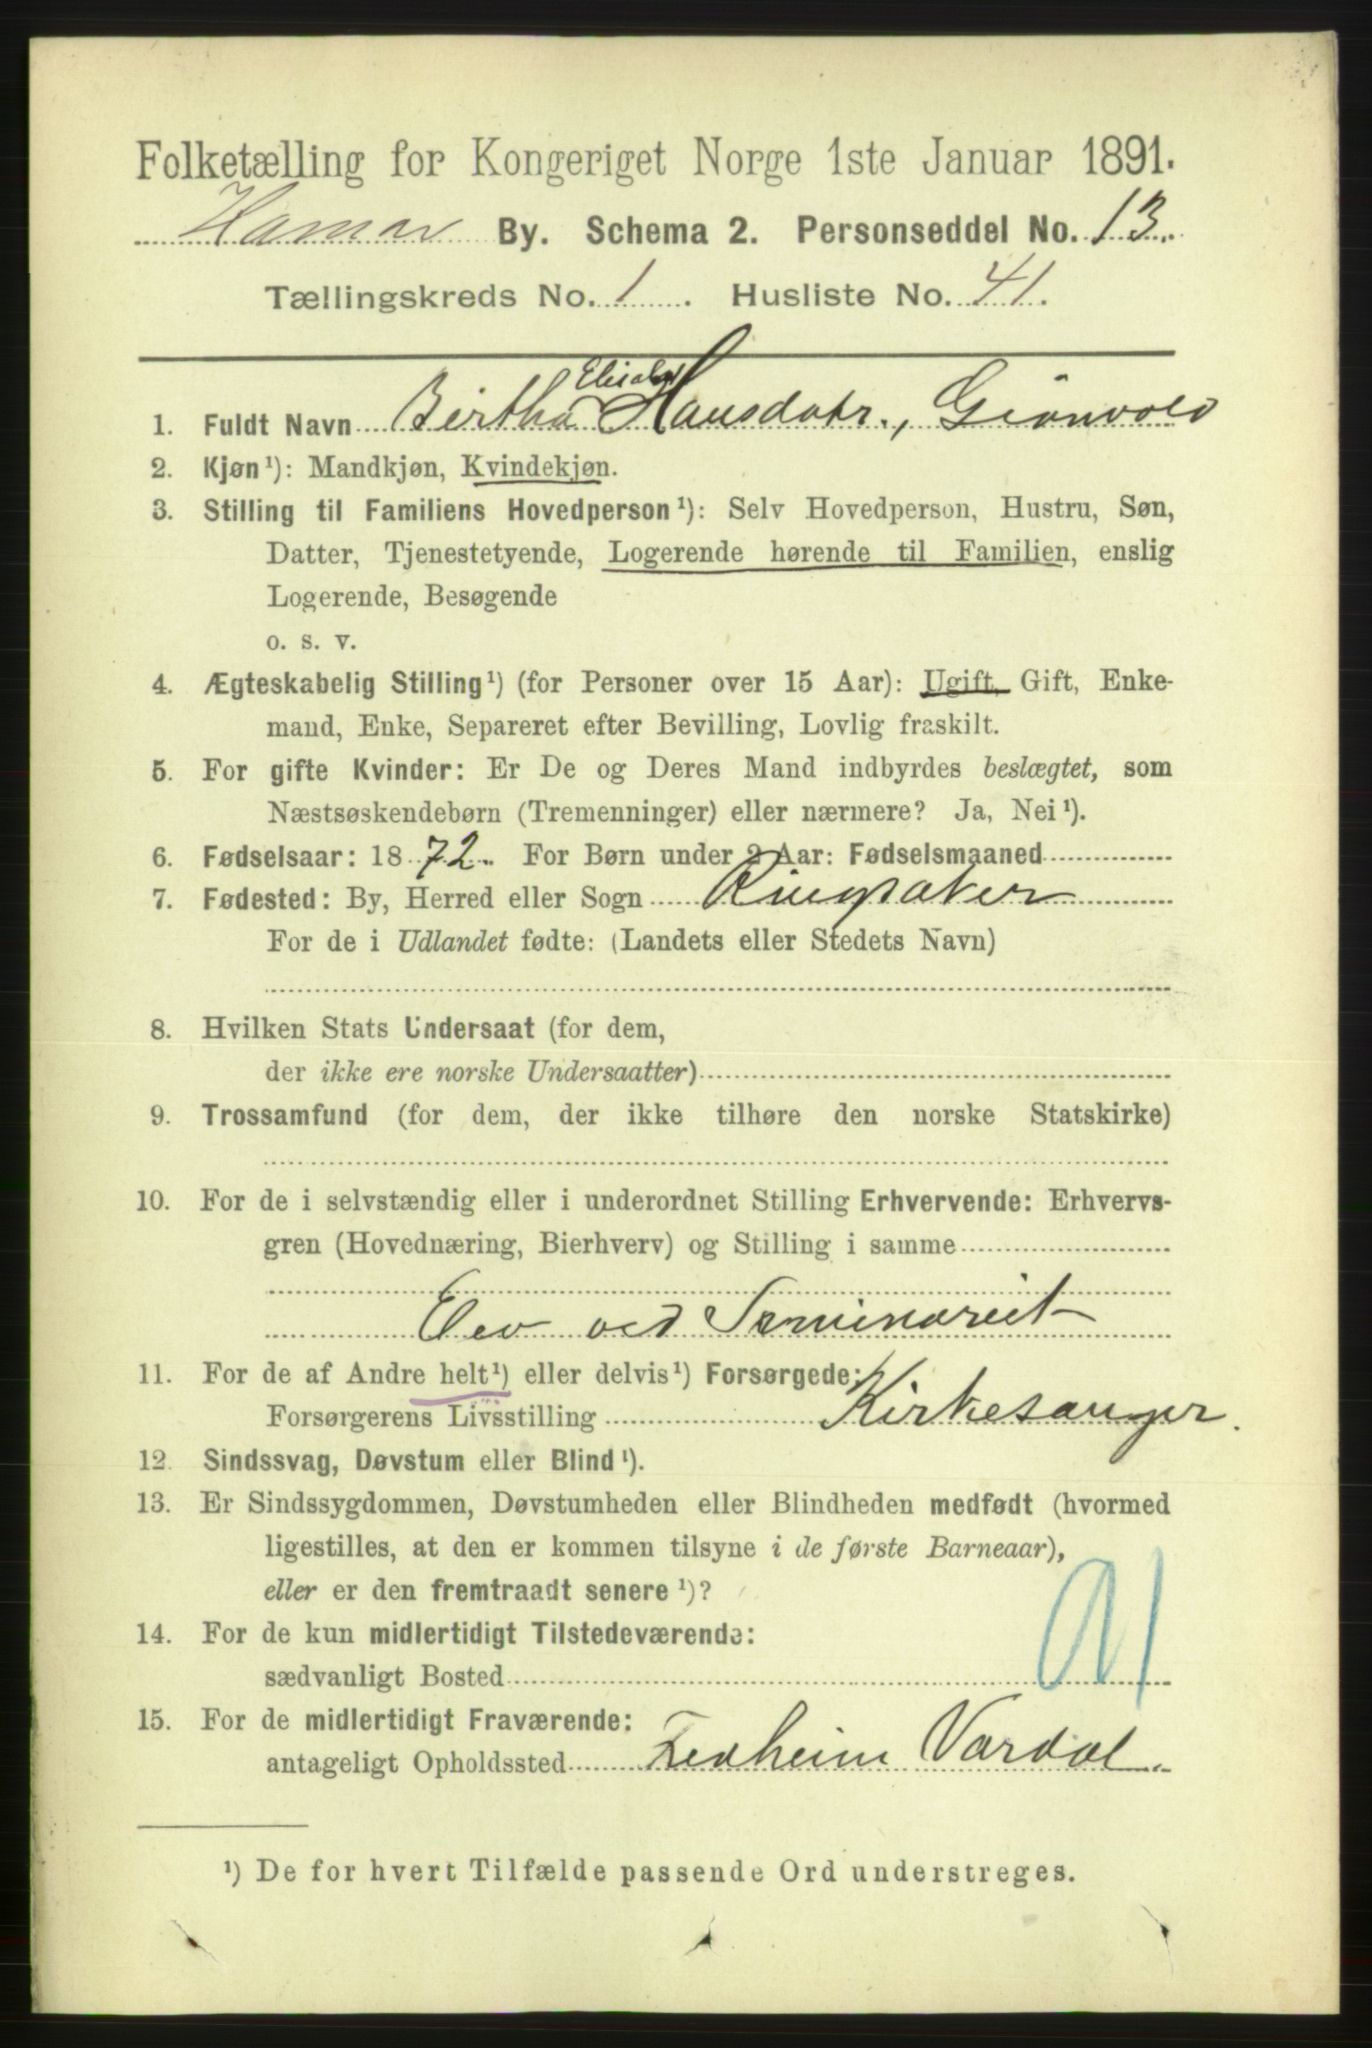 Folketælling for Kongeriget Norge 1ste Januar 1891.
Hamar By. Schema 2. Personseddel No. 13.
Tællingskreds No. 1. Husliste No. 41.
1. Fuldt Navn Birtha Hansdatr., Grönvold
2. Kjøn ¹): Mandkjøn, Kvindekjøn.
3. Stilling til Familiens Hovedperson ¹): Selv Hovedperson, Hustru, Søn,
Datter, Tjenestetyende, Logerende hørende til Familien, enslig
Logerende, Besøgende
o. s. v.
4. Ægteskabelig Stilling ¹) (for Personer over 15 Aar): Ugift, Gift, Enke-
mand, Enke, Separeret efter Bevilling, Lovlig fraskilt.
5. For gifte Kvinder: Er De og Deres Mand indbyrdes beslægtet, som
Næstsøskendebørn (Tremenninger) eller nærmere? Ja, Nei ¹).
6. Fødselsaar: 1872. For Børn under 2 Aar: Fødselsmaaned
7. Fødested: By, Herred eller Sogn Ringsaker
For de i Udlandet fødte: (Landets eller Stedets Navn)
8. Hvilken Stats Undersaat (for dem,
der ikke ere norske Undersaatter)
9. Trossamfund (for dem, der ikke tilhøre den norske Statskirke)
10. For de i selvstændig eller i underordnet Stilling Erhvervende: Erhvervs-
gren (Hovednæring, Bierhverv) og Stilling i samme
Elev ved Seminariet
11. For de af Andre helt ¹) eller delvis ¹) Forsørgede:
Forsørgerens Livsstilling Kirkesanger.
12. Sindssvag, Døvstum eller Blind ¹).
13. Er Sindssygdommen, Døvstumheden eller Blindheden medfødt (hvormed
ligestilles, at den er kommen tilsyne i de første Barneaar),
eller er den fremtraadt senere ¹)?
14. For de kun midlertidigt Tilstedeværende:
sædvanligt Bosted
15. For de midlertidigt Fraværende:
antageligt Opholdssted Vardal.
¹) De for hvert Tilfælde passende Ord understreges.